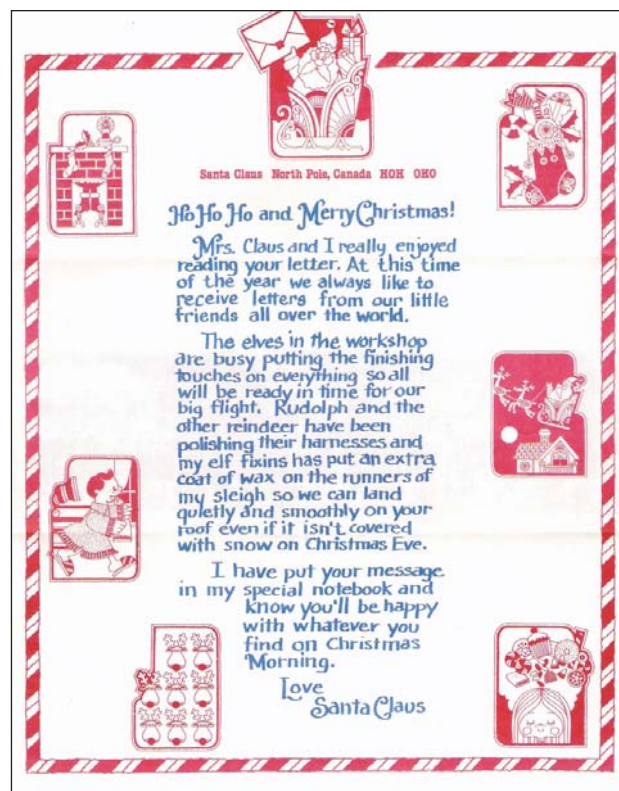 Santa Claus North Pole, Canada HOH OHO
Ho Ho Ho and Merry Christmas!
Mrs. Claus and I really enjoyed
reading your letter. At this time
of the year we always like to
receive letters from our little
friends all over the world.
The elves in the workshop
are busy putting the finishing
touches on everything so all
will be ready in time for our
big flight. Rudolph and the
other reindeer have been
polishing their harnesses and
my elf fixins has put an extra
coat of wax on the runners of
my sleigh so we can land
quietly and smoothly on your
roof even if it isn't covered
with snow on Christmas Eve.
I have put your message
in my special notebook and
know you'll be happy
with whatever you
find on Christmas
Morning.
Love
Santa Claus